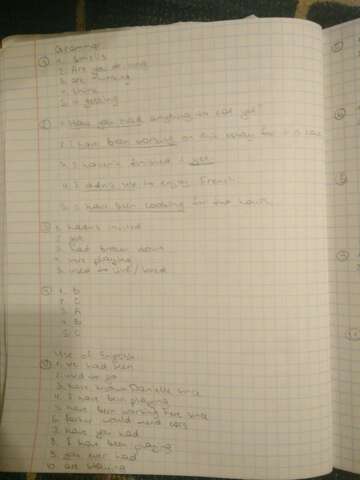 Grammar
① 1. Smells
2. Are you driving
3. are thinking
4. think
5. is getting
② 1. Have you had anything to eat yet
2. I have been working on this essay for
3. I haven't finished yet
4. I didn't use to enjoy French
5. I have been cooking for two hours
③ 1. hadn't
2. got
3. had broken down
4. were playing
5. used to live / lived
1. B
2. C
3. A
4. B
5. C
Use of English
1. 've had been
2. used to go
3. have known Danielle since
4. I have been playing
5. have been working here since
6. father would mend cars
7. have you had
8. I have been playing
9. you ever had
10. are staying